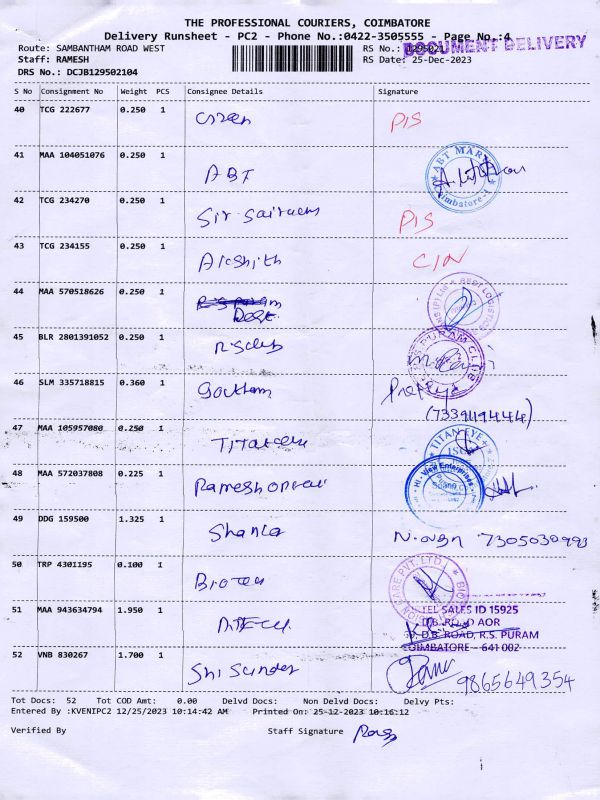 THE PROFESSIONAL COURIERS, COIMBATORE
Delivery Runsheet - PC2 - Phone No.:0422-3505555 - Page No.:4
DOCUMENT DELIVERY
Route: SAMBANTHAM ROAD WEST RS No.: 1295021
Staff: RAMESH RS Date: 25-Dec-2023
DRS No.: DCJB129502104
S No Consignment No Weight PCS Consignee Details Signature
40 TCG 222677 0.250 1 Green P/S
41 MAA 104051076 0.250 1 ABT ABT MARU
42 TCG 234270 0.250 1 Sir Sairam P/S
43 TCG 234155 0.250 1 Akshith C/N
44 MAA 570518626 0.250 1 Best
45 BLR 2801391052 0.250 1 Rsclub PURAM CLUB
46 SLM 335718815 0.360 1 Goutham
(7339494444)
47 MAA 105957080 0.250 1 TITAN EYE+
48 MAA 572037808 0.225 1 Hi-View Enterprises
49 DDG 159500 1.325 1 7305030993
50 TRP 4301195 0.100 1 CARE PVT. LTD
51 MAA 943634794 1.950 1 TEL SALES ID 15925
D.B. ROAD, R.S. PURAM
COIMBATORE - 641 002
52 VNB 830267 1.700 1 Shi Sunder 9865649354
Tot Docs: 52 Tot COD Amt: 0.00 Delvd Docs: Non Delvd Docs: Delvy Pts:
Entered By :KVENIPC2 12/25/2023 10:14:42 AM Printed On: 25-12-2023 10:16:12
Verified By Staff Signature